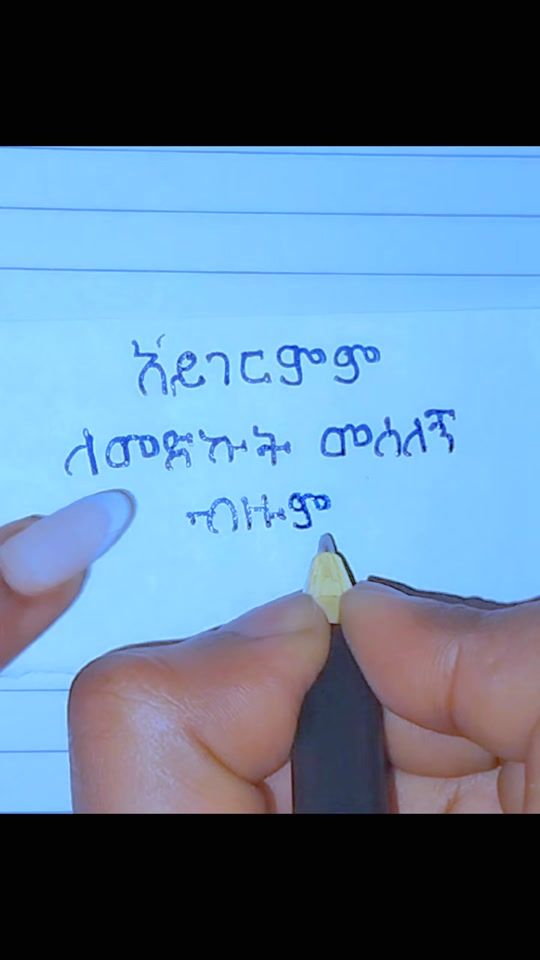 አይገርምም
ለመድኩት መሳለኝ
ብዙም